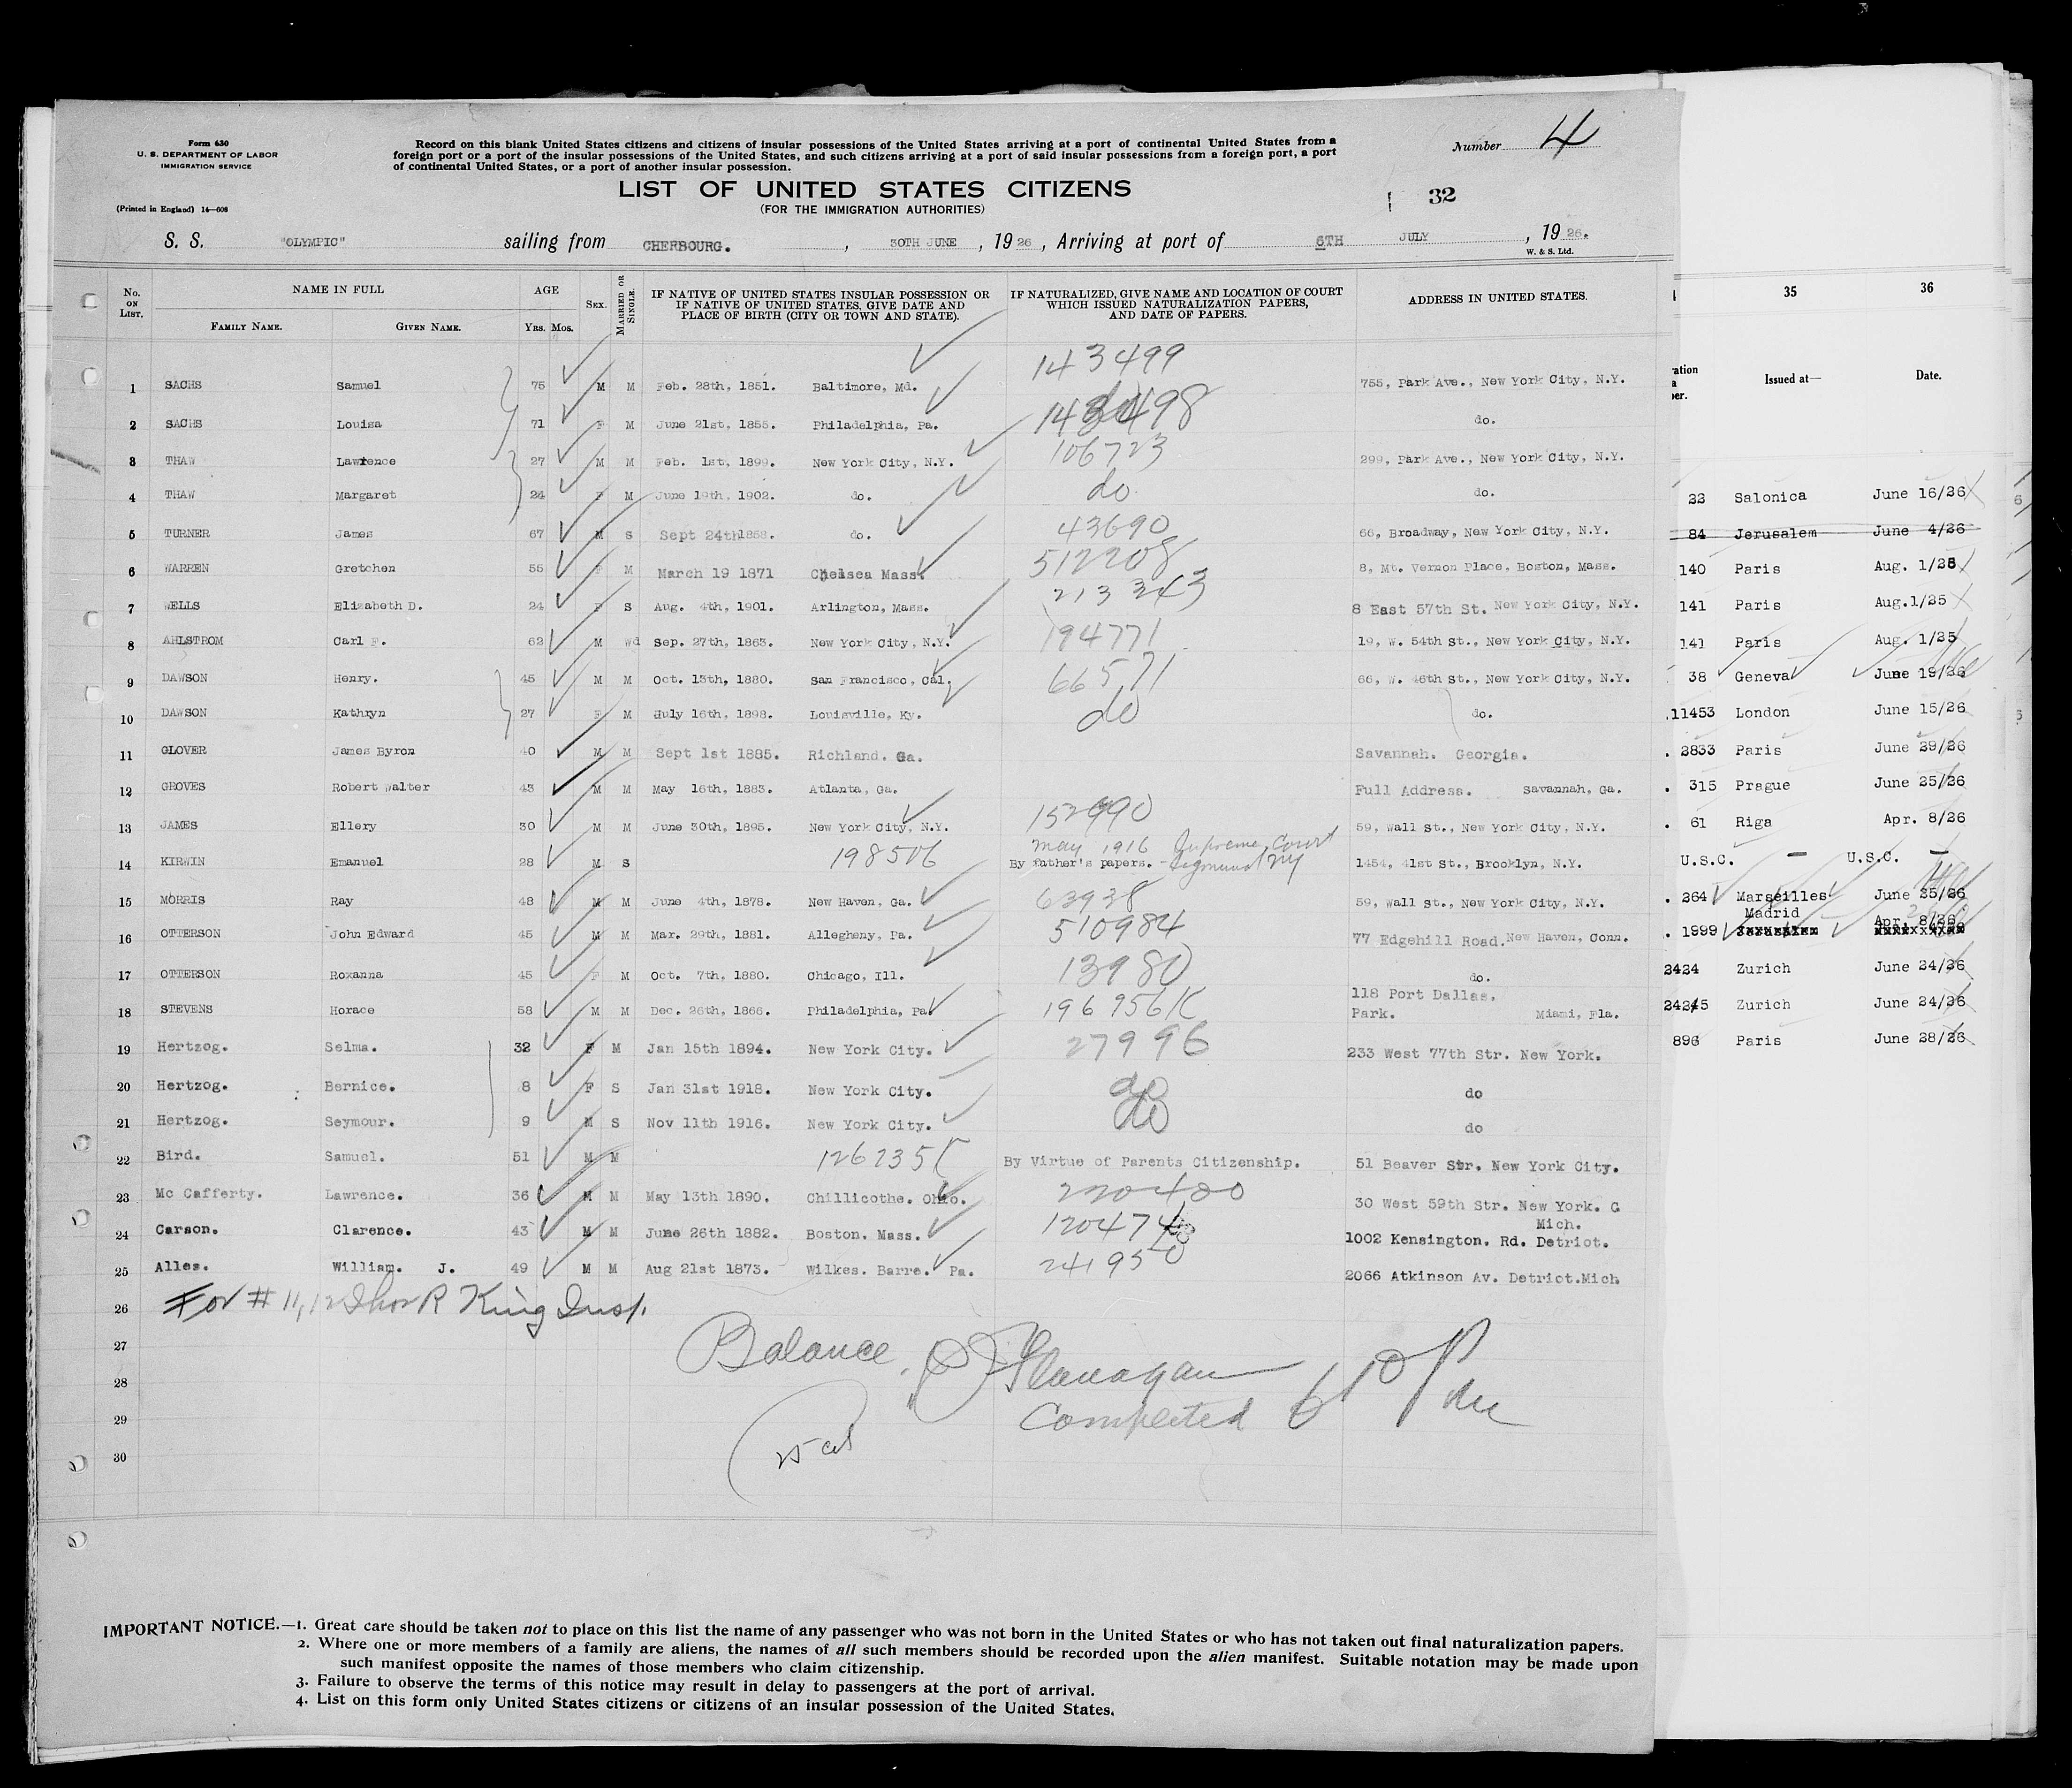 Form 630
U. S. DEPARTMENT OF LABOR
IMMIGRATION SERVICE
(Printed in England) 14—608
Record on this blank United States citizens and citizens of insular possessions of the United States arriving at a port of continental United States from a
foreign port or a port of the insular possessions of the United States, and such citizens arriving at a port of said insular possessions from a foreign port, a port
of continental United States, or a port of another insular possession.
Number 4
LIST OF UNITED STATES CITIZENS
(FOR THE IMMIGRATION AUTHORITIES)
32
S. S. "OLYMPIC" sailing from CHERBOURG. , 30TH JUNE , 19 26 , Arriving at port of 6TH JULY , 19 26.
W. & S. Ltd.
No. ON LIST. NAME IN FULL AGE SEX. MARRIED OR SINGLE. IF NATIVE OF UNITED STATES INSULAR POSSESSION OR IF NATIVE OF UNITED STATES, GIVE DATE AND PLACE OF BIRTH (CITY OR TOWN AND STATE). IF NATURALIZED, GIVE NAME AND LOCATION OF COURT WHICH ISSUED NATURALIZATION PAPERS, AND DATE OF PAPERS. ADDRESS IN UNITED STATES.
FAMILY NAME. GIVEN NAME. YRS. MOS.
1 SACHS Samuel 75 M M Feb. 28th, 1851. Baltimore, Md. 143499 755, Park Ave., New York City, N.Y.
2 SACHS Louisa 71 F M June 21st, 1855. Philadelphia, Pa. 143498 do.
3 THAW Lawrence 27 M M Feb. 1st, 1899. New York City, N.Y. 106723 299, Park Ave., New York City, N.Y.
4 THAW Margaret 24 F M June 19th, 1902. do. do. do.
5 TURNER James 67 M S Sept 24th 1858. do. 43690 66, Broadway, New York City, N.Y.
6 WARREN Gretchen 55 F M March 19 1871 Chelsea Mass. 512208 8, Mt. Vernon Place, Boston, Mass.
7 WELLS Elizabeth D. 24 F S Aug. 4th, 1901. Arlington, Mass. 213343 8 East 57th St. New York City, N.Y.
8 AHLSTROM Carl F. 62 M Wd Sep. 27th, 1863. New York City, N.Y. 194771 19, W. 54th St., New York City, N.Y.
9 DAWSON Henry. 45 M M Oct. 13th, 1880. San Francisco, Cal. 66571 66, W. 46th St., New York City, N.Y.
10 DAWSON Kathryn 27 F M July 16th, 1898. Louisville, Ky. do do.
11 GLOVER James Byron 40 M M Sept 1st 1885. Richland. Ga. Savannah. Georgia.
12 GROVES Robert Walter 43 M M May 16th, 1883. Atlanta, Ga. Full Address. Savannah, Ga.
13 JAMES Ellery 30 M M June 30th, 1895. New York City, N.Y. 152990 59, Wall St., New York City, N.Y.
May 1916 Supreme Court
14 KIRWIN Emanuel 28 M S 198506 By father's papers. - Sigmund NY 1454, 41st St., Brooklyn, N.Y.
15 MORRIS Ray 48 M M June 4th, 1878. New Haven, Ga. 63938 59, Wall St., New York City, N.Y.
16 OTTERSON John Edward 45 M M Mar. 29th, 1881. Allegheny, Pa. 510984 77 Edgehill Road. New Haven, Conn.
17 OTTERSON Roxanna 45 F M Oct. 7th, 1880. Chicago, Ill. 13980 do.
118 Port Dallas.
18 STEVENS Horace 58 M M Dec. 26th, 1866. Philadelphia, Pa. 196956 Park. Miami, Fla.
19 Hertzog. Selma. 32 F M Jan 15th 1894. New York City. 27996 233 West 77th Str. New York.
20 Hertzog. Bernice. 8 F S Jan 31st 1918. New York City. do do
21 Hertzog. Seymour. 9 M S Nov 11th 1916. New York City. do do
22 Bird. Samuel. 51 M M By Virtue of Parents Citizenship. 51 Beaver Str. New York City.
23 Mc Cafferty. Lawrence. 36 M M May 13th 1890. Chillicothe. Ohio. 220400 30 West 59th Str. New York. C
Mich.
24 Carson. Clarence. 43 M M June 26th 1882. Boston. Mass. 120474 1002 Kensington. Rd. Detriot.
25 Alles. William. J. 49 M M Aug 21st 1873. Wilkes. Barre. Pa. 241950 2066 Atkinson Av. Detriot.Mich
26 For # 11, 12 Thos R King Insp.
27 Balance. Flanagan
28
29 Completed 6
30
IMPORTANT NOTICE.—1. Great care should be taken not to place on this list the name of any passenger who was not born in the United States or who has not taken out final naturalization papers.
2. Where one or more members of a family are aliens, the names of all such members should be recorded upon the alien manifest. Suitable notation may be made upon
such manifest opposite the names of those members who claim citizenship.
3. Failure to observe the terms of this notice may result in delay to passengers at the port of arrival.
4. List on this form only United States citizens or citizens of an insular possession of the United States.
35 36
Issued at— Date.
22 Salonica June 16/26
84 Jerusalem June 4/26
140 Paris Aug. 1/25
141 Paris Aug.1/25
141 Paris Aug. 1/25
38 Geneva June 19/26
11453 London June 15/26
2833 Paris June 29/26
315 Prague June 25/26
61 Riga Apr. 8/26
U.S.C. — U.S.C. —
264 Marseilles June 25/26
Madrid Apr. 8/26
1999
2424 Zurich June 24/26
2425 Zurich June 24/26
896 Paris June 28/26